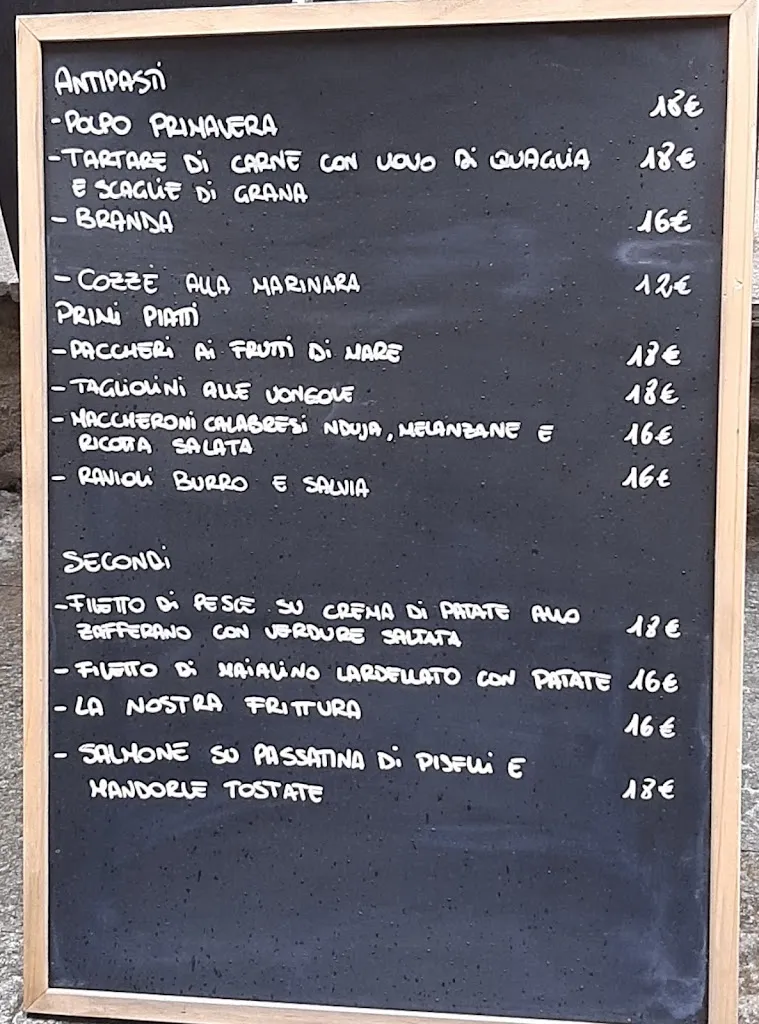 ANTIPASTI
-POLPO PRIMAVERA 18€
-TARTARE DI CARNE CON UOVO DI QUAGLIA 18€
E SCAGLIE DI GRANA
- BRANDA 16€
- COZZE ALLA MARINARA 12€
PRIMI PIATTI
-PACCHERI AI FRUTTI DI MARE 18€
-TAGLIOLINI ALLE VONGOLE 18€
-MACCHERONI CALABRESI NDUJA, MELANZANE E 16€
RICOTTA SALATA
- RAVIOLI BURRO E SALVIA 16€
SECONDI
-FILETTO DI PESCE SU CREMA DI PATATE ALLO
ZAFFERANO CON VERDURE SALTATA 18€
- FILETTO DI MAIALINO LARDELLATO CON PATATE 16€
- LA NOSTRA FRITTURA 16€
- SALMONE SU PASSATINA DI PISELLI E
MANDORLE TOSTATE 18€